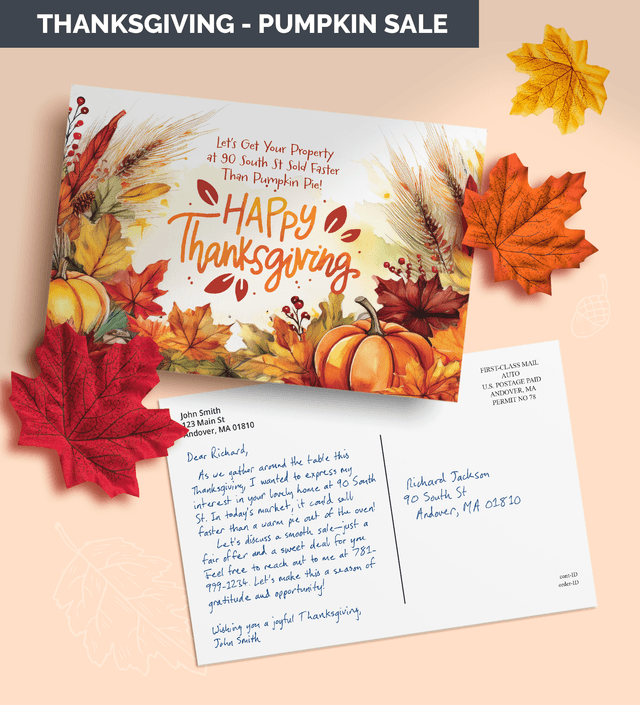 THANKSGIVING - PUMPKIN SALE
Let's Get Your Property
at 90 South St Sold Faster
Than Pumpkin Pie!
HAPPY
Thanksgiving
John Smith
123 Main St
Andover, MA 01810
FIRST-CLASS MAIL
AUTO
U.S. POSTAGE PAID
ANDOVER, MA
PERMIT NO 78
Dear Richard,
As we gather around the table this
Thanksgiving, I wanted to express my
interest in your lovely home at 90 South
St. In today's market, it could sell
faster than a warm pie out of the oven!
Let's discuss a smooth sale—just a
fair offer and a sweet deal for you.
Feel free to reach out to me at 781-
999-1234. Let's make this a season of
gratitude and opportunity!
Wishing you a joyful Thanksgiving,
John Smith
Richard Jackson
90 South St
Andover, MA 01810
cont-ID
order-ID